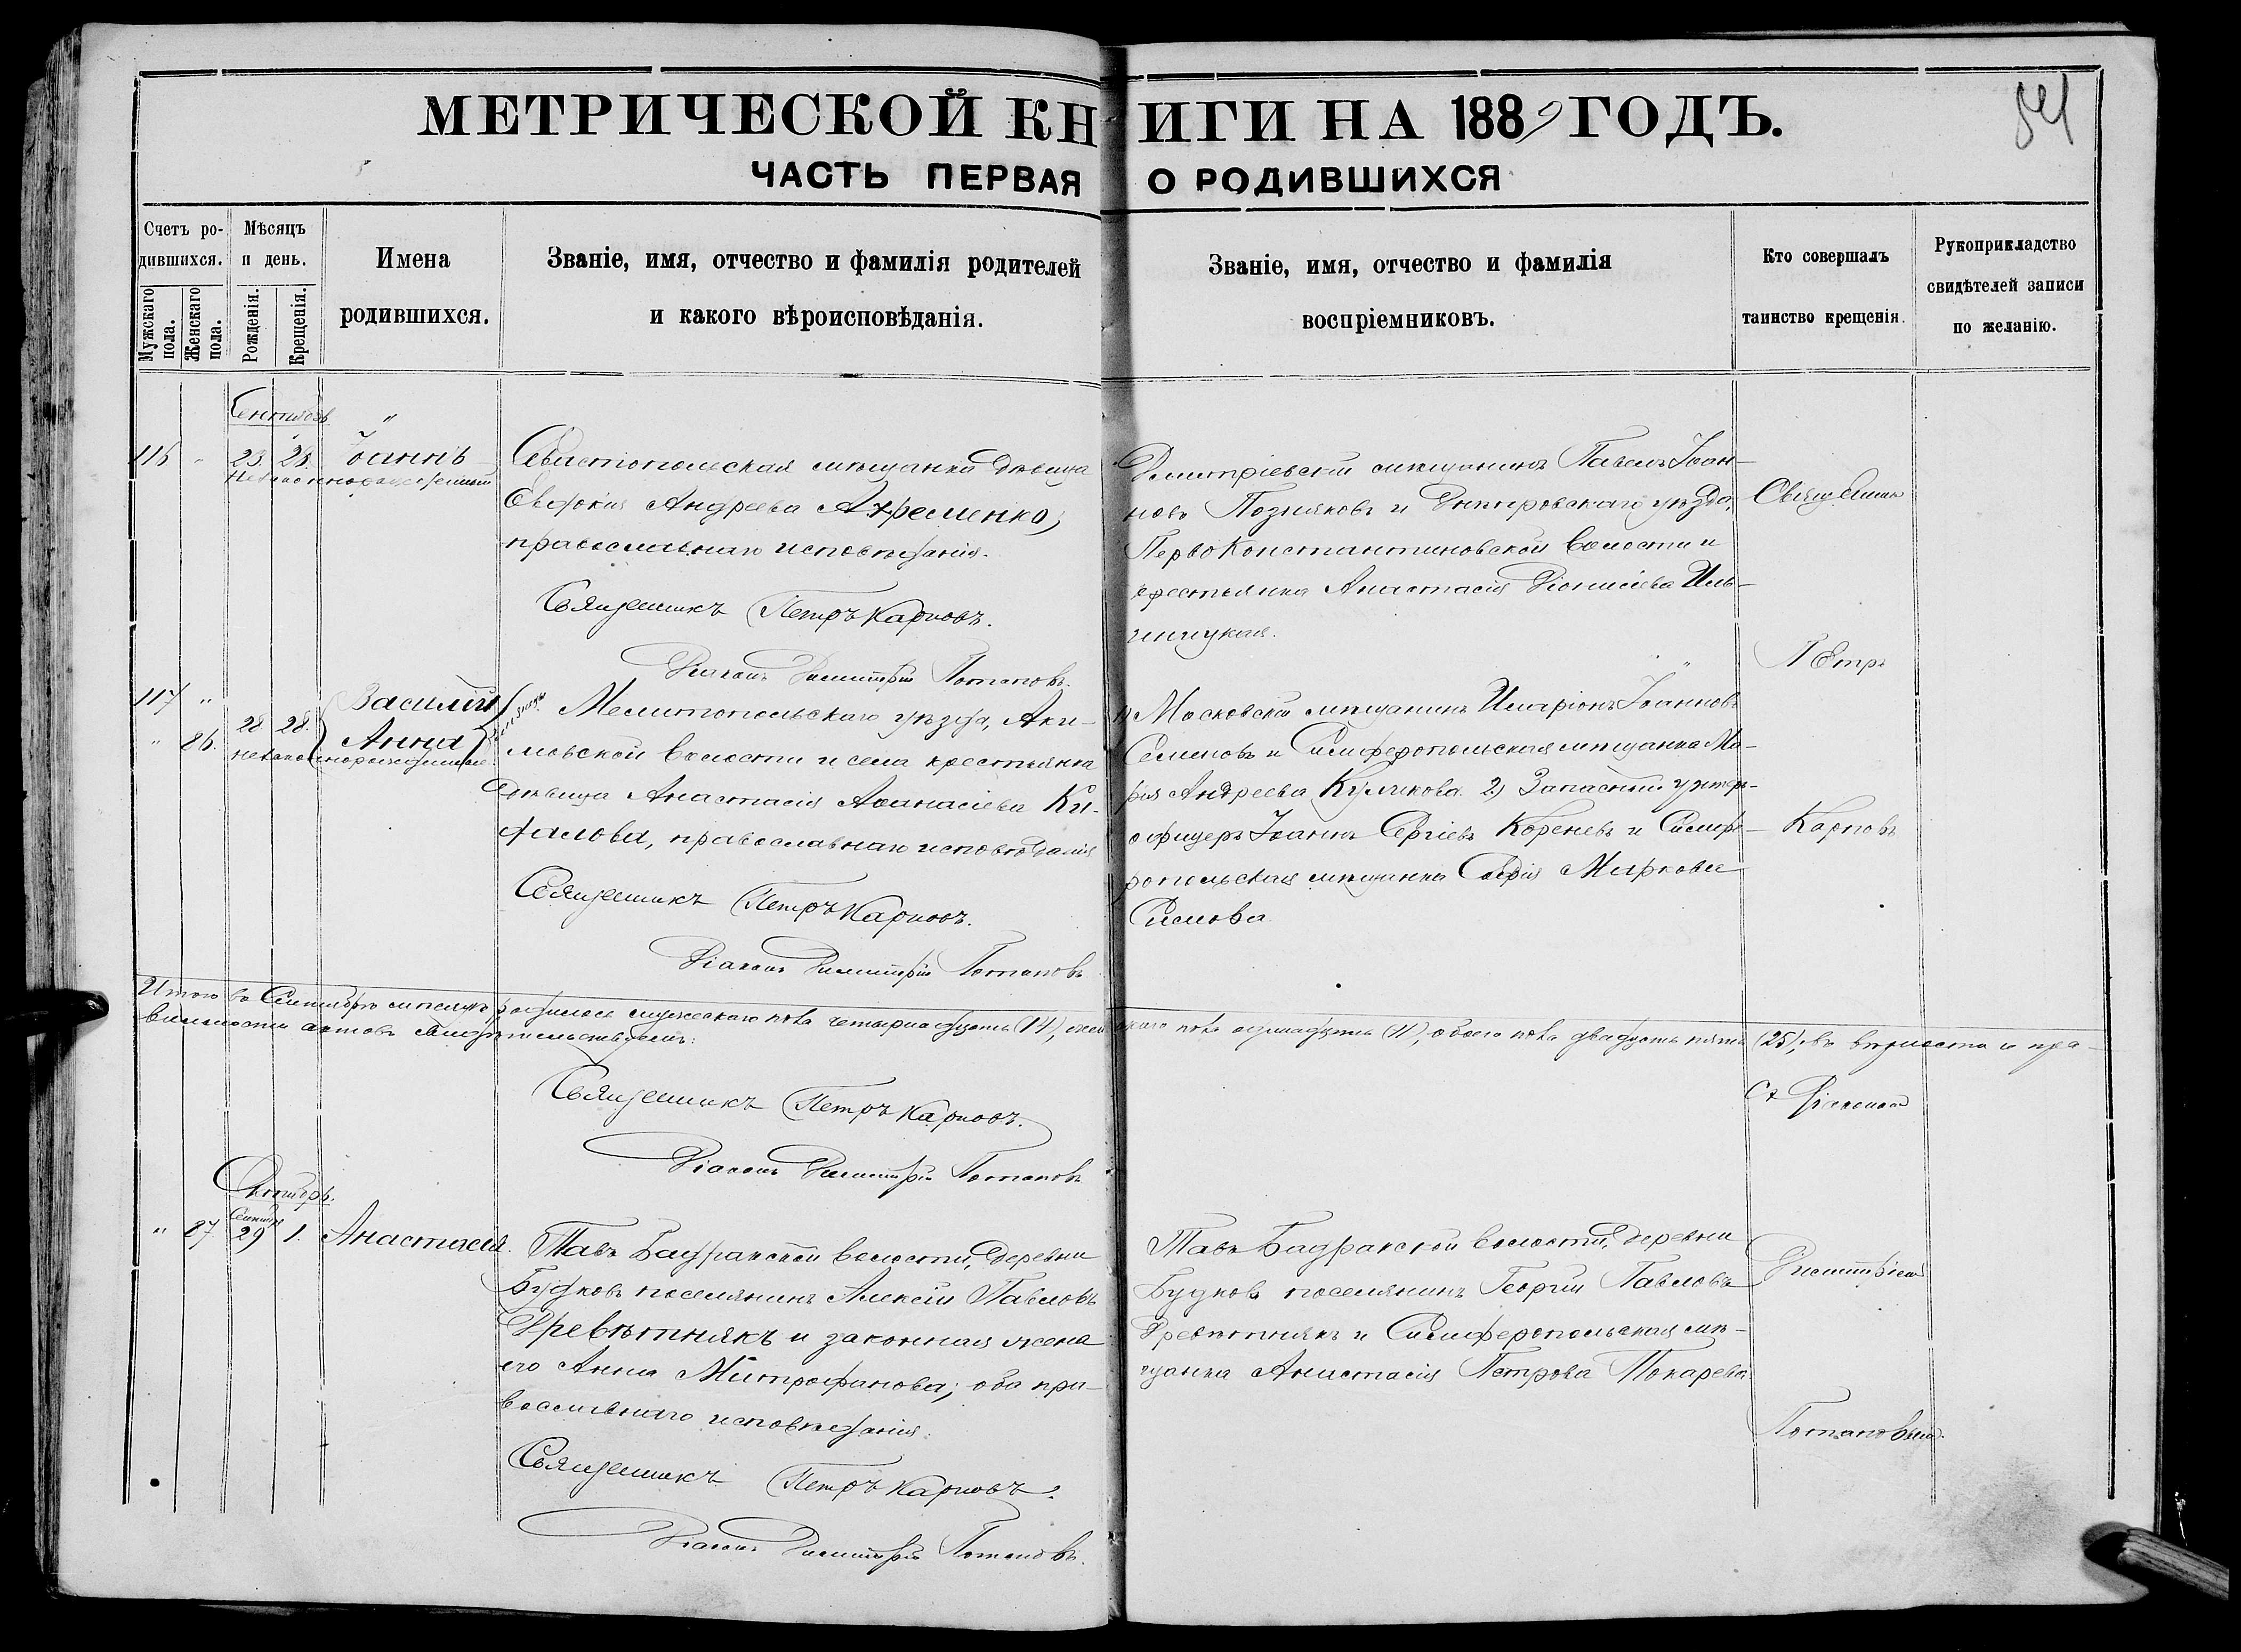 МЕТРИЧЕСКОЙ КНИГИ НА 1889 ГОДЪ.
54
ЧАСТЬ ПЕРВАЯ О РОДИВШИХСЯ
Счетъ родившихся.
Мужскаго пола.
Женскаго пола.
Мѣсяцъ и день.
Рожденія.
Крещенія.
Имена
родившихся.
Званіе, имя, отчество и фамилія родителей
и какого вѣроисповѣданія.
Званіе, имя, отчество и фамилія
воспріемниковъ.
Кто совершалъ
таинство крещенія.
Рукоприкладство
свидѣтелей записи
по желанію.
Сентябрь
116 " 23. 28. Іоаннъ
незаконнорожденный
Севастопольская мѣщанка дѣвица
Евдокія Андреева Ахременко,
православнаго исповѣданія.
Священникъ Петръ Карповъ.
Діаконъ Димитрій Потаповъ.
Дмитріевскій мѣщанинъ Павелъ Іоан-
новъ Позняковъ и Днѣпровскаго уѣзда,
ПервоКонстантиновской волости и
крестьянка Анастасія Діонисіева
Священникъ
Петръ
Карповъ
117 "
" 86.
28. 28.
Василій
Анна
незаконнорожденные.
Мелитопольскаго уѣзда, Аки-
мовской волости и села крестьянка
дѣвица Анастасія Аѳанасіева Ки-
православнаго исповѣданія
Священникъ Петръ Карповъ.
Діаконъ Димитрій Потаповъ
1) Московскій мѣщанинъ Иларіонъ Іоанновъ
Семеновъ и Симферопольская мѣщанка Ма-
рія Андреева Куликова. 2) Запасный унтеръ-
офицеръ Іоаннъ Сергіевъ Кореневъ и Симфе-
ропольская мѣщанка Софія Маркова
Итого въ Сентябрѣ мѣсяцѣ родилось мужескаго пола четырнадцать (14), женскаго пола одинадцать (11), обоего пола двадцать пять (25), въ вѣрности и пра-
вильности актовъ свидѣтельствуемъ:
Священникъ Петръ Карповъ.
Діаконъ Димитрій Потаповъ
Октябрь.
" 87.
Сентяб.
29 1. Анастасія.
Тавъ Бадракской волости, деревни
Будковъ поселянинъ Алексій Павловъ
Древѣтнякъ и законная жена
его Анна Митрофанова; оба пра-
вославнаго исповѣданія.
Священникъ Петръ Карповъ.
Діаконъ Димитрій Потаповъ.
Тавъ Бадракской волости, деревни
Будковъ поселянинъ Георгій Павловъ
Древѣтнякъ и Симферопольская мѣ-
щанка Анастасія Петрова Токарева.
Съ Діакономъ
Димитріемъ
Потаповымъ.